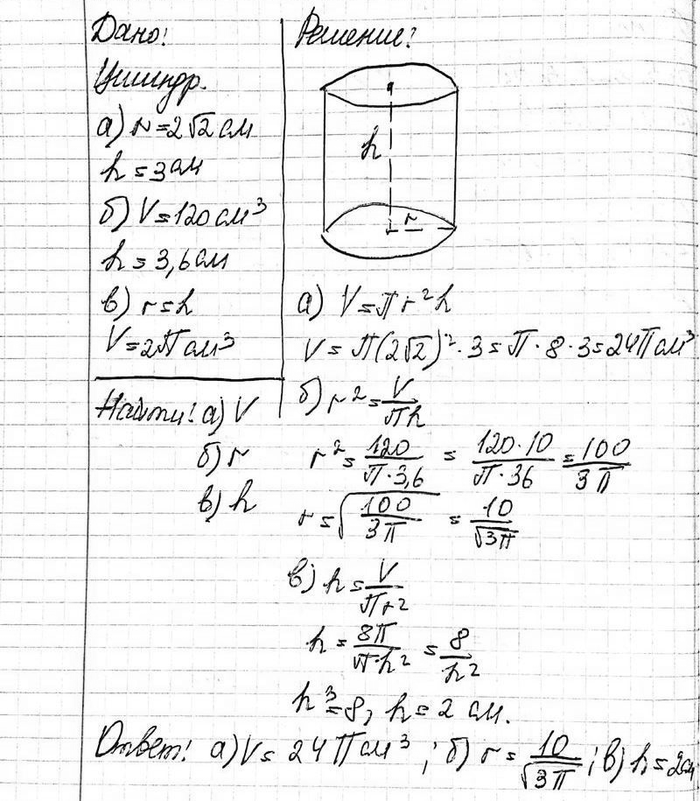 Дано:
Цилиндр.
а) r = 2√2 см
h = 3 см
б) V = 120 см³
h = 3,6 см
в) r = h
V = 2π см³
Найти: а) V
б) r
в) h
Решение:
h
r
а) V = πr²h
V = π(2√2)² · 3 = π · 8 · 3 = 24π см³
б) r² = V/πh
r² = 120/π · 3,6 = 120 · 10/π · 36 = 100/3π
r = √(100/3π) = 10/√3π
в) h = V/πr²
h = 8π/π · h² = 8/h²
h³ = 8, h = 2 см.
Ответ: а) V = 24π см³; б) r = 10/√3π; в) h = 2см